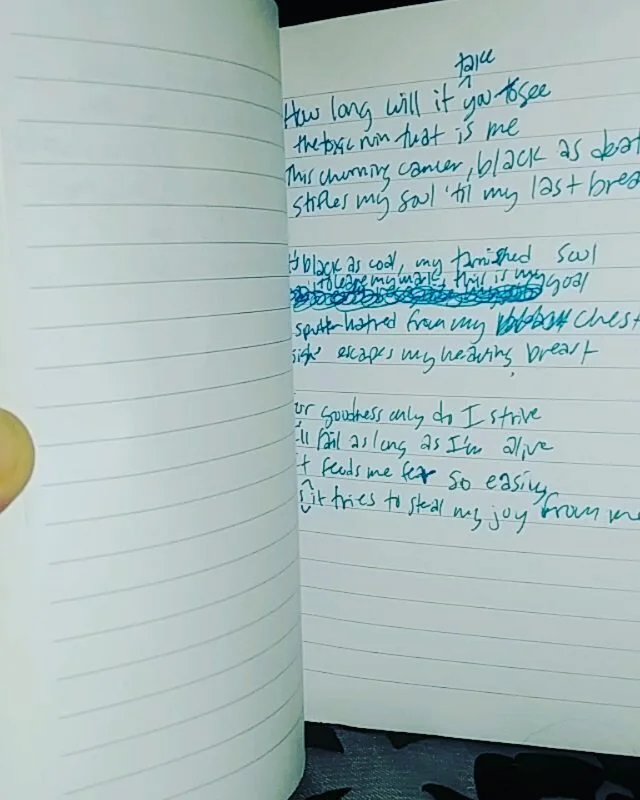 take
How long will it ^ you to see
the toxic ruin that is me
This churning cancer, black as deat
stifles my soul 'til my last brea
black as coal, my tarnished soul
to leave my mark, this is my goal
sputter hatred from my chest
escapes my heaving breast
or goodness only do I strive
ll fail as long as I'm alive
t feeds me fear so easily
s it tries to steal my joy from me